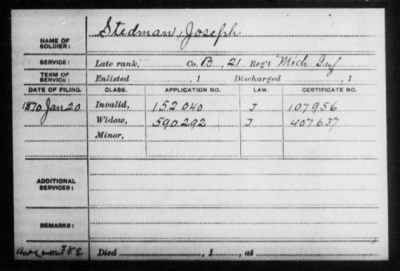 NAME OF SOLDIER: Stedman, Joseph
SERVICE: Late rank, Co. B, 21 Reg't Mich Inf
TERM OF SERVICE: Enlisted , 1 Discharged , 1
DATE OF FILING. CLASS. APPLICATION NO. LAW. CERTIFICATE NO.
1870 Jan 20 Invalid, 152 040 J 107956
Widow, 590.292 J 407.637
Minor,
ADDITIONAL SERVICES:
REMARKS:
Died , 1 , at